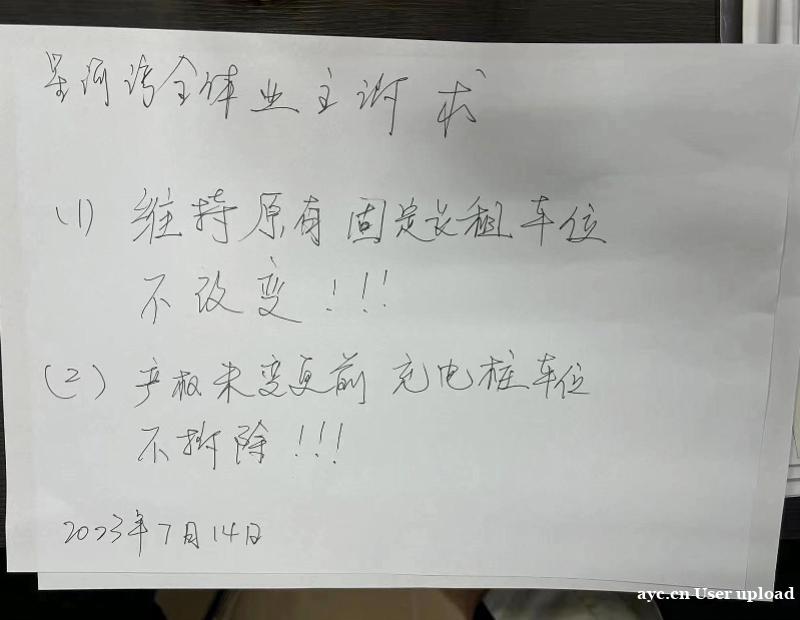 星河湾全体业主诉求
(1) 维持原有固定长租车位
不改变!!!
(2) 产权未变更前充电桩车位
不拆除!!!
2023年7月14日
ayc.cn User upload